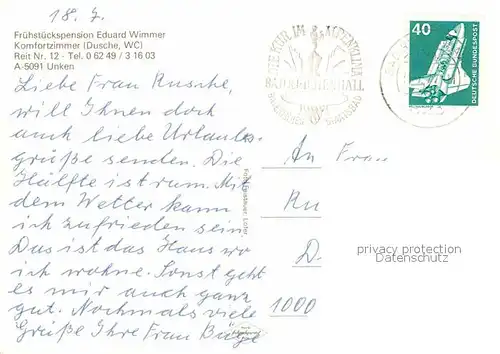 18. 7.
Frühstückspension Eduard Wimmer
Komfortzimmer (Dusche, WC)
Reit Nr. 12 - Tel. 0 62 49 / 3 16 03
A-5091 Unken
Liebe Frau Rusche,
will Ihnen doch
auch liebe Urlaubs-
grüße senden. Die
Hälfte ist rum. Mit
dem Wetter kann
ich zufrieden sein.
Das ist das Haus wo
ich wohne. Sonst geht
es mir auch ganz
gut. Nochmals viele
Grüße Ihre Frau Büge
KUR IM ALPENKLIMA
BAD REICHENHALL
BAYERISCHES STAATSBAD
40
DEUTSCHE BUNDESPOST
An Frau
Ru
D.
1000
privacy protection
Datenschutz